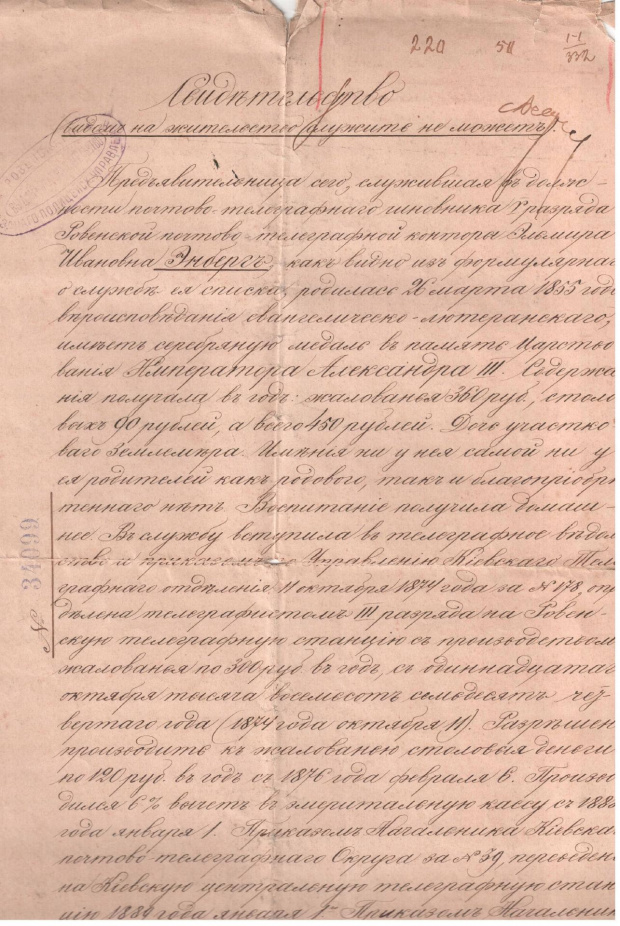 220 58 1-1
332
Свидѣтельство
(видомъ на жительство служить не можетъ).
Предъявительница сего, служившая въ долж-
ности почтово-телеграфнаго чиновника V разряда
Ровенской почтово-телеграфной конторы Эльмира
Ивановна Энбергъ, какъ видно изъ формулярнаг
о службѣ ея списка, родилась 26 марта 1855 года
вѣроисповѣданія евангелическо-лютеранскаго,
имѣетъ серебряную медаль въ память Царство
ванія Императора Александра III. Содержа
нія получала въ годъ: жалованья 360 руб., столо
выхъ 90 рублей, а всего 450 рублей. Дочь участко
ваго Землемѣра. Имѣнія ни у нея самой ни у
ея родителей какъ родового, такъ и благопріобрѣ
теннаго нѣтъ. Воспитаніе получила домаш-
нее. Въ службу вступила въ телеграфное вѣдом
ство и Управленію Кіевскаго Теле
графнаго отдѣленія 11 октября 1874 года за № 178, опре
дѣлена телеграфистомъ III разряда на Ровен-
скую телеграфную станцію съ производствомъ
жалованья по 300 руб. въ годъ, съ одиннадцатаг
октября тысяча восемьсотъ семьдесятъ чет
вертаго года (1874 года октября 11). Разрѣшен
производить къ жалованью столовыя деньги
по 120 руб. въ годъ съ 1876 года февраля 6. Произво
дился 6% вычетъ въ эмеритальную кассу съ 188
года января 1. Приказомъ Начальника Кіевска
почтово-телеграфнаго Округа за № 39, переведен
на Кіевскую центральную телеграфную стан
цію 1889 года января 1го Приказомъ Начальник
№ 34099